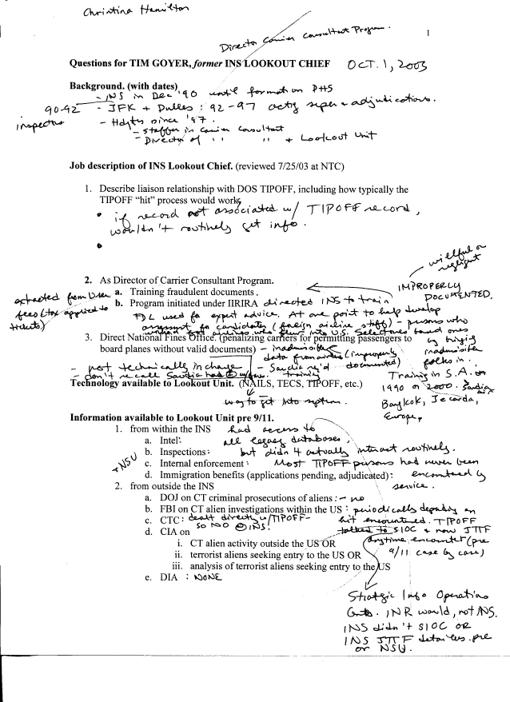 Christina Hamilton
Director Carrier Consultant Program.
1
Questions for TIM GOYER, former INS LOOKOUT CHIEF OCT. 1, 2003
Background. (with dates)
- INS in Dec '90 until formation DHS
90-92 - JFK + Dulles : 92-97 actg super - adjudications.
inspector - Hdqtrs since '97.
- staffer in Carrier Consultant
- Director of " " + Lookout Unit
Job description of INS Lookout Chief. (reviewed 7/25/03 at NTC)
1. Describe liaison relationship with DOS TIPOFF, including how typically the
TIPOFF "hit" process would work.
• if record not associated w/ TIPOFF record,
wouldn't routinely get info.
•
willful or
negligent
2. As Director of Carrier Consultant Program.
IMPROPERLY
DOCUMENTED.
a. Training fraudulent documents.
extracted from User
fees (tax applied to
tickets)
b. Program initiated under IIRIRA directed INS to train
FDL used for expert advice. At one point to help develop
assessment for candidates (foreign airline staff) - persons who
3. Direct National Fines Office. (penalizing carriers for permitting passengers to
board planes without valid documents) - inadmissible
data from airlines (improperly
documented)
- not technically in charge
- don't recall Saudis had
- Saudis req'd
training
folks in.
Training in S.A. in
1990 or 2000. Saudia
Technology available to Lookout Unit. (NAILS, TECS, TIPOFF, etc.)
way to get into system.
Bangkok,
Europe,
Information available to Lookout Unit pre 9/11.
1. from within the INS had access to
a. Intel: all legacy databases,
b. Inspections: but didn't actually interact routinely.
+NSU
c. Internal enforcement: Most TIPOFF persons had never been
d. Immigration benefits (applications pending, adjudicated): encountered by
service.
2. from outside the INS
a. DOJ on CT criminal prosecutions of aliens: - no
b. FBI on CT alien investigations within the US : periodically depending on
c. CTC: dealt directly w/TIPOFF- hit encountered. TIPOFF
so NO @INS!
d. CIA on talked to SIOC + now JTTF
i. CT alien activity outside the US OR anytime encounter (pre
ii. terrorist aliens seeking entry to the US OR 9/11 case by case)
iii. analysis of terrorist aliens seeking entry to the US
e. DIA : NONE
Strategic Info Operations
Cntr. INR would, not INS.
INS didn't SIOC OR
INS JTTF detailees pre
or NSU.